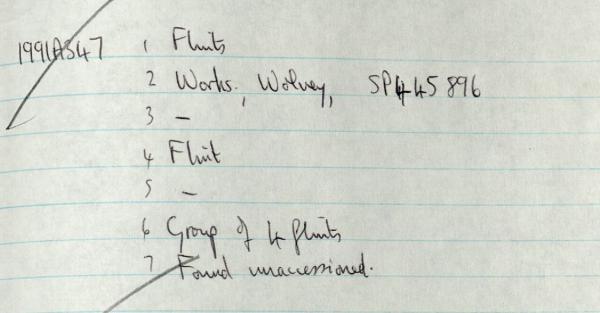 1991AS47 1 Flints
2 Warks., Wolvey, SP445896
3 —
4 Flint
5 —
6 Group of 4 flints
7 Found unaccessioned.